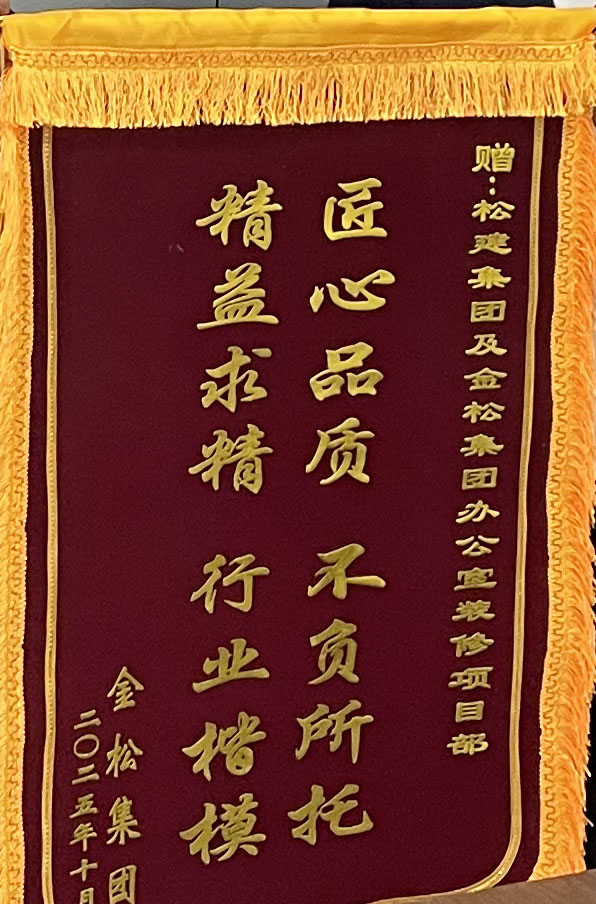 赠:松建集团及金松集团办公室装修项目部
匠心品质 不负所托
精益求精 行业楷模
金松集团
二〇二五年十月